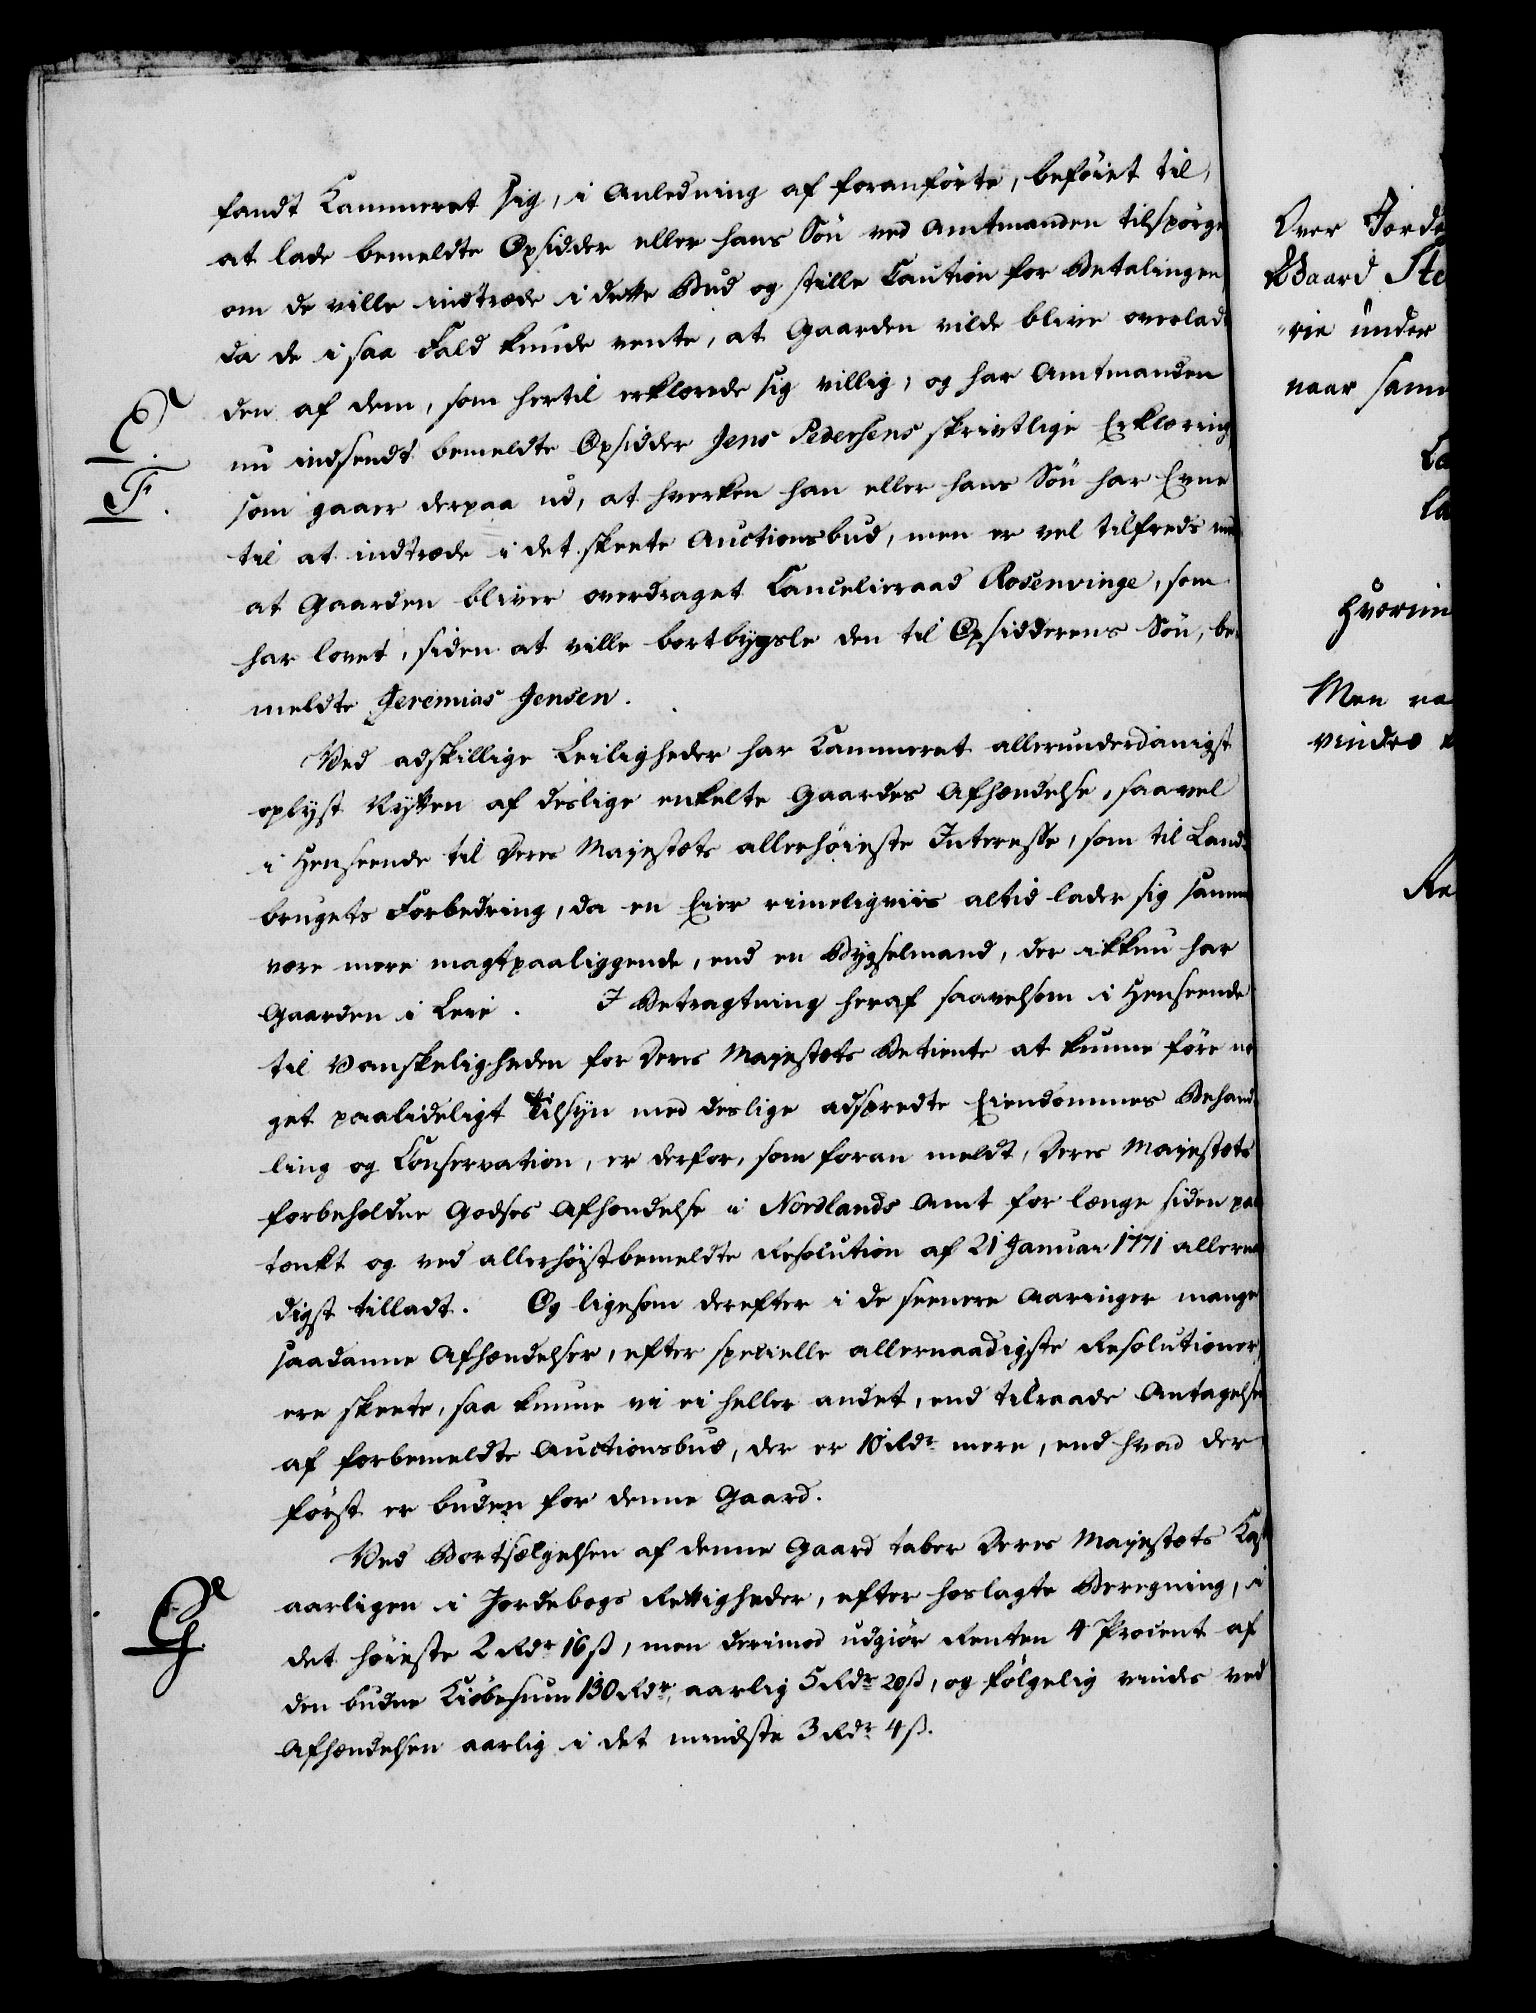 fandt Kammeret sig, i Anledning af foranförte, beföiet til,
at lade bemeldte Opsidder eller hans Sön ved Amtmanden tilspörge
om de ville indtræde i dette Bud og stille Caution for Betalingen
da de i saa Fald kunde vente, at Gaarden vilde blive overladt
den af dem, som hertil erklærede sig villig, og har Amtmanden
E.
nu indsendt bemeldte Opsidder Jens Pedersens skrivtlige Erklæring
F.
som gaaer derpaa ud, at hverken han eller hans Sön har Evne
til at indtræde i det skeete Auctionsbud, men er vel tilfreds med
at Gaarden bliver overdraget Cancelieraad Rosenvinge, som
har lovet, siden at ville bortbygsle den til Opsidderens Sön, be-
meldte Jeremias Jensen.
Ved adskillige Leiligheder har Kammeret allerunderdanigst
oplyst Nytten af deslige enkelte Gaardes Afhændelse, saavel
i Henseende til Deres Majestæts allerhöieste Interesse, som til Land-
brugets Forbedring, da en Eier rimeligviis altid lader sig samme
være mere magtpaaliggende, end en Bygselmand, der ikkun har
Gaarden i Leie. I Betragtning heraf saavelsom i Henseende
til Vanskeligheden for Deres Majestæts Betiente at kunne före no
get paalideligt Tilsyn med deslige adspredte Eiendommes Behand-
ling og Conservation, er derfor, som foran meldt, Deres Majestæts
forbeholdne Godses Afhændelse i Nordlands Amt for længe siden paa
tænkt og ved allerhöistbemeldte Resolution af 21 Januar 1771 allernaa
digst tilladt. Og ligesom derefter i de seenere Aaringer mange
saadanne Afhændelser, efter specielle allernaadigste Resolutioner
ere skeete, saa kunne vi ei heller andet, end tilraade Antagelsen
af forbemeldte Auctionsbud, der er 10 Rdr mere, end hvad der
först er buden for denne Gaard.
Ved Bortsælgelsen af denne Gaard taber Deres Majestæts Kasse
G
aarligen i Jordebogs Rettigheder, efter hoslagte Beregning, i
det höieste 2 Rdr 16 ß, men derimod udgiör Renten 4 Procent af
den budne Kiöbesum 130 Rdr, aarlig 5 Rdr 20 ß, og fölgelig vindes ved
Afhændelsen aarlig i det mindste 3 Rdr 4 ß.
Over Jorde
Gaard Ste
rie under
naar sam
La
la
Hvorim
Men na
vindes
Re